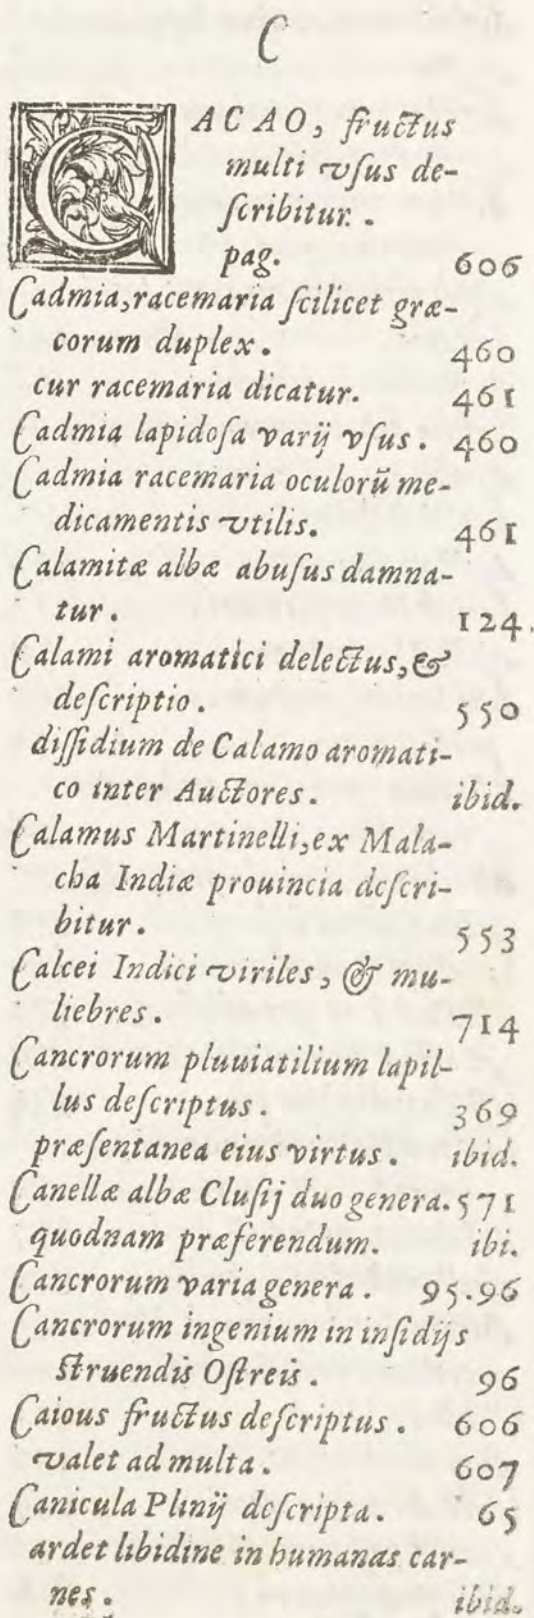 C
CACAO, fructus
multi vſus de-
ſcribitur.
pag. 606
Cadmia, racemaria ſcilicet græ-
corum duplex. 460
cur racemaria dicatur. 461
Cadmia lapidoſa varij vſus. 460
Cadmia racemaria oculorū me-
dicamentis vtilis. 461
Calamitæ albæ abuſus damna-
tur. 124.
Calami aromatici delectus, &
deſcriptio. 550
diſſidium de Calamo aromati-
co inter Auctores. ibid.
Calamus Martinelli, ex Mala-
cha Indiæ prouincia deſcri-
bitur. 553
Calcei Indici viriles, & mu-
liebres. 714
Cancrorum pluuiatilium lapil-
lus deſcriptus. 369
præſentanea eius virtus. ibid.
Canellæ albæ Cluſij duo genera. 571
quodnam præferendum. ibi.
Cancrorum varia genera. 95.96
Cancrorum ingenium in inſidijs
ſtruendis Oſtreis. 96
Caious fructus deſcriptus. 606
valet ad multa. 607
Canicula Plinij deſcripta. 65
ardet libidine in humanas car-
nes. ibid.